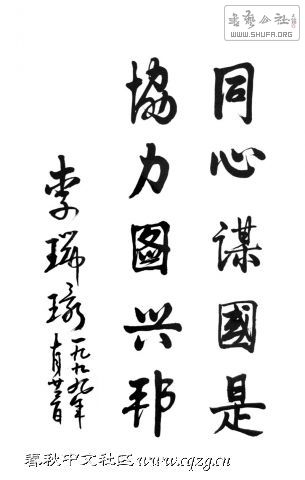 書藝公社
WWW.SHUFA.ORG
同心謀國是
協力圖兴邦
李瑞環
一九九九年
春秋中文社区 www.cqzg.cn